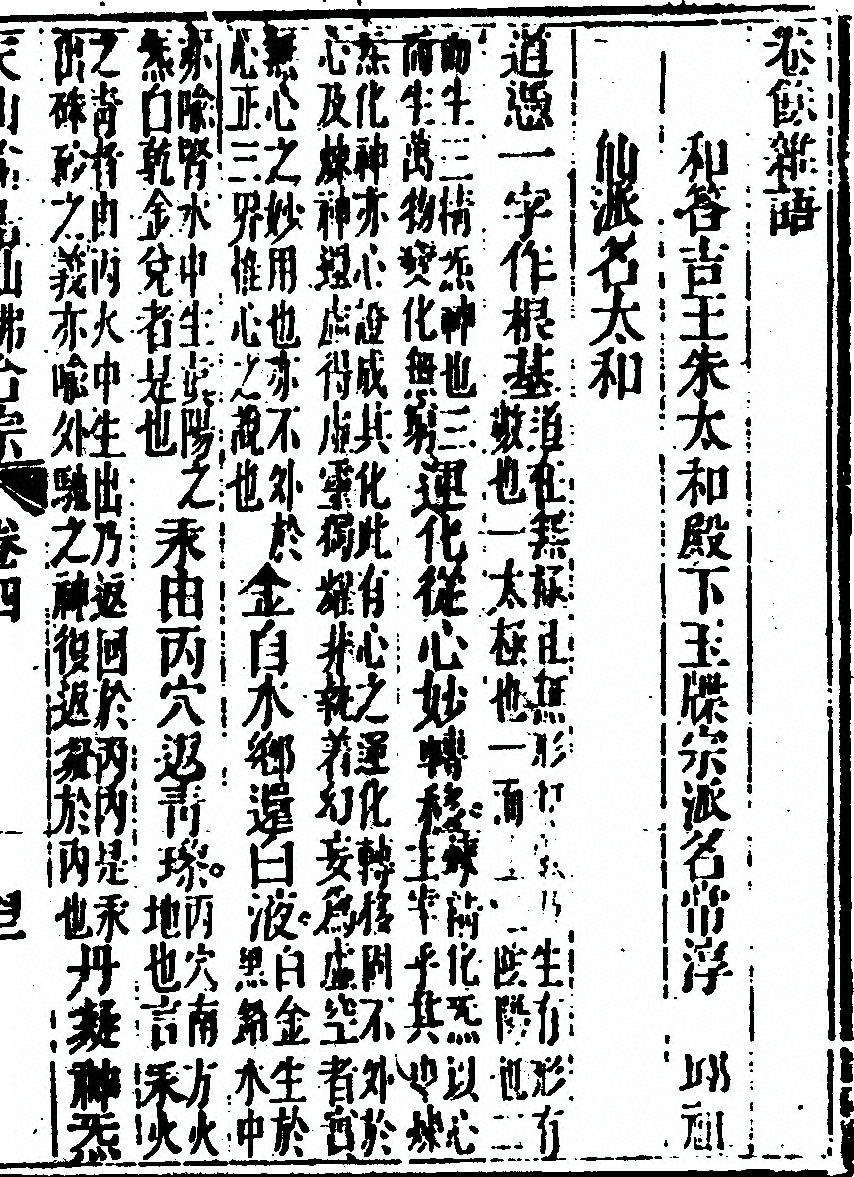 卷餘雜語
和答吉王朱太和殿下玉牒宗派名常淳 邱祖
仙派名太和
道憑一字作根基道在無極且無形
敷也一太極也一而 生有形有
陰陽也二
而生三情炁神也三運化從心妙轉移煉精化炁以心
而生萬物變化無窮 主宰乎其 也煉
炁化神亦心證成其化此有心之運化轉移固不外於
心及煉神還虛得虛靈獨耀非執着幻妄爲虛空者言
無心之妙用也亦不外於金自水鄉還白液白金生於
心正三界惟心之說也 黑鉛水中
亦喻腎水中生真陽之汞由丙穴返青璨丙穴南方火
炁曰乾金兌者是也 地也言汞火
之青者由丙火中生出乃返回於丙丙是汞丹凝神炁
硃砂之義亦喻外馳之神復返凝於丙也
天仙 仙佛合宗 卷四